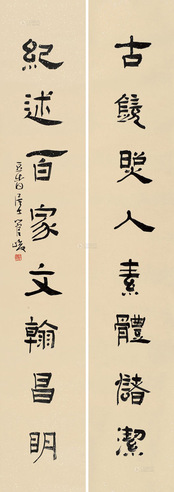 古镜照人素體儲潔
紀述百家文翰昌明